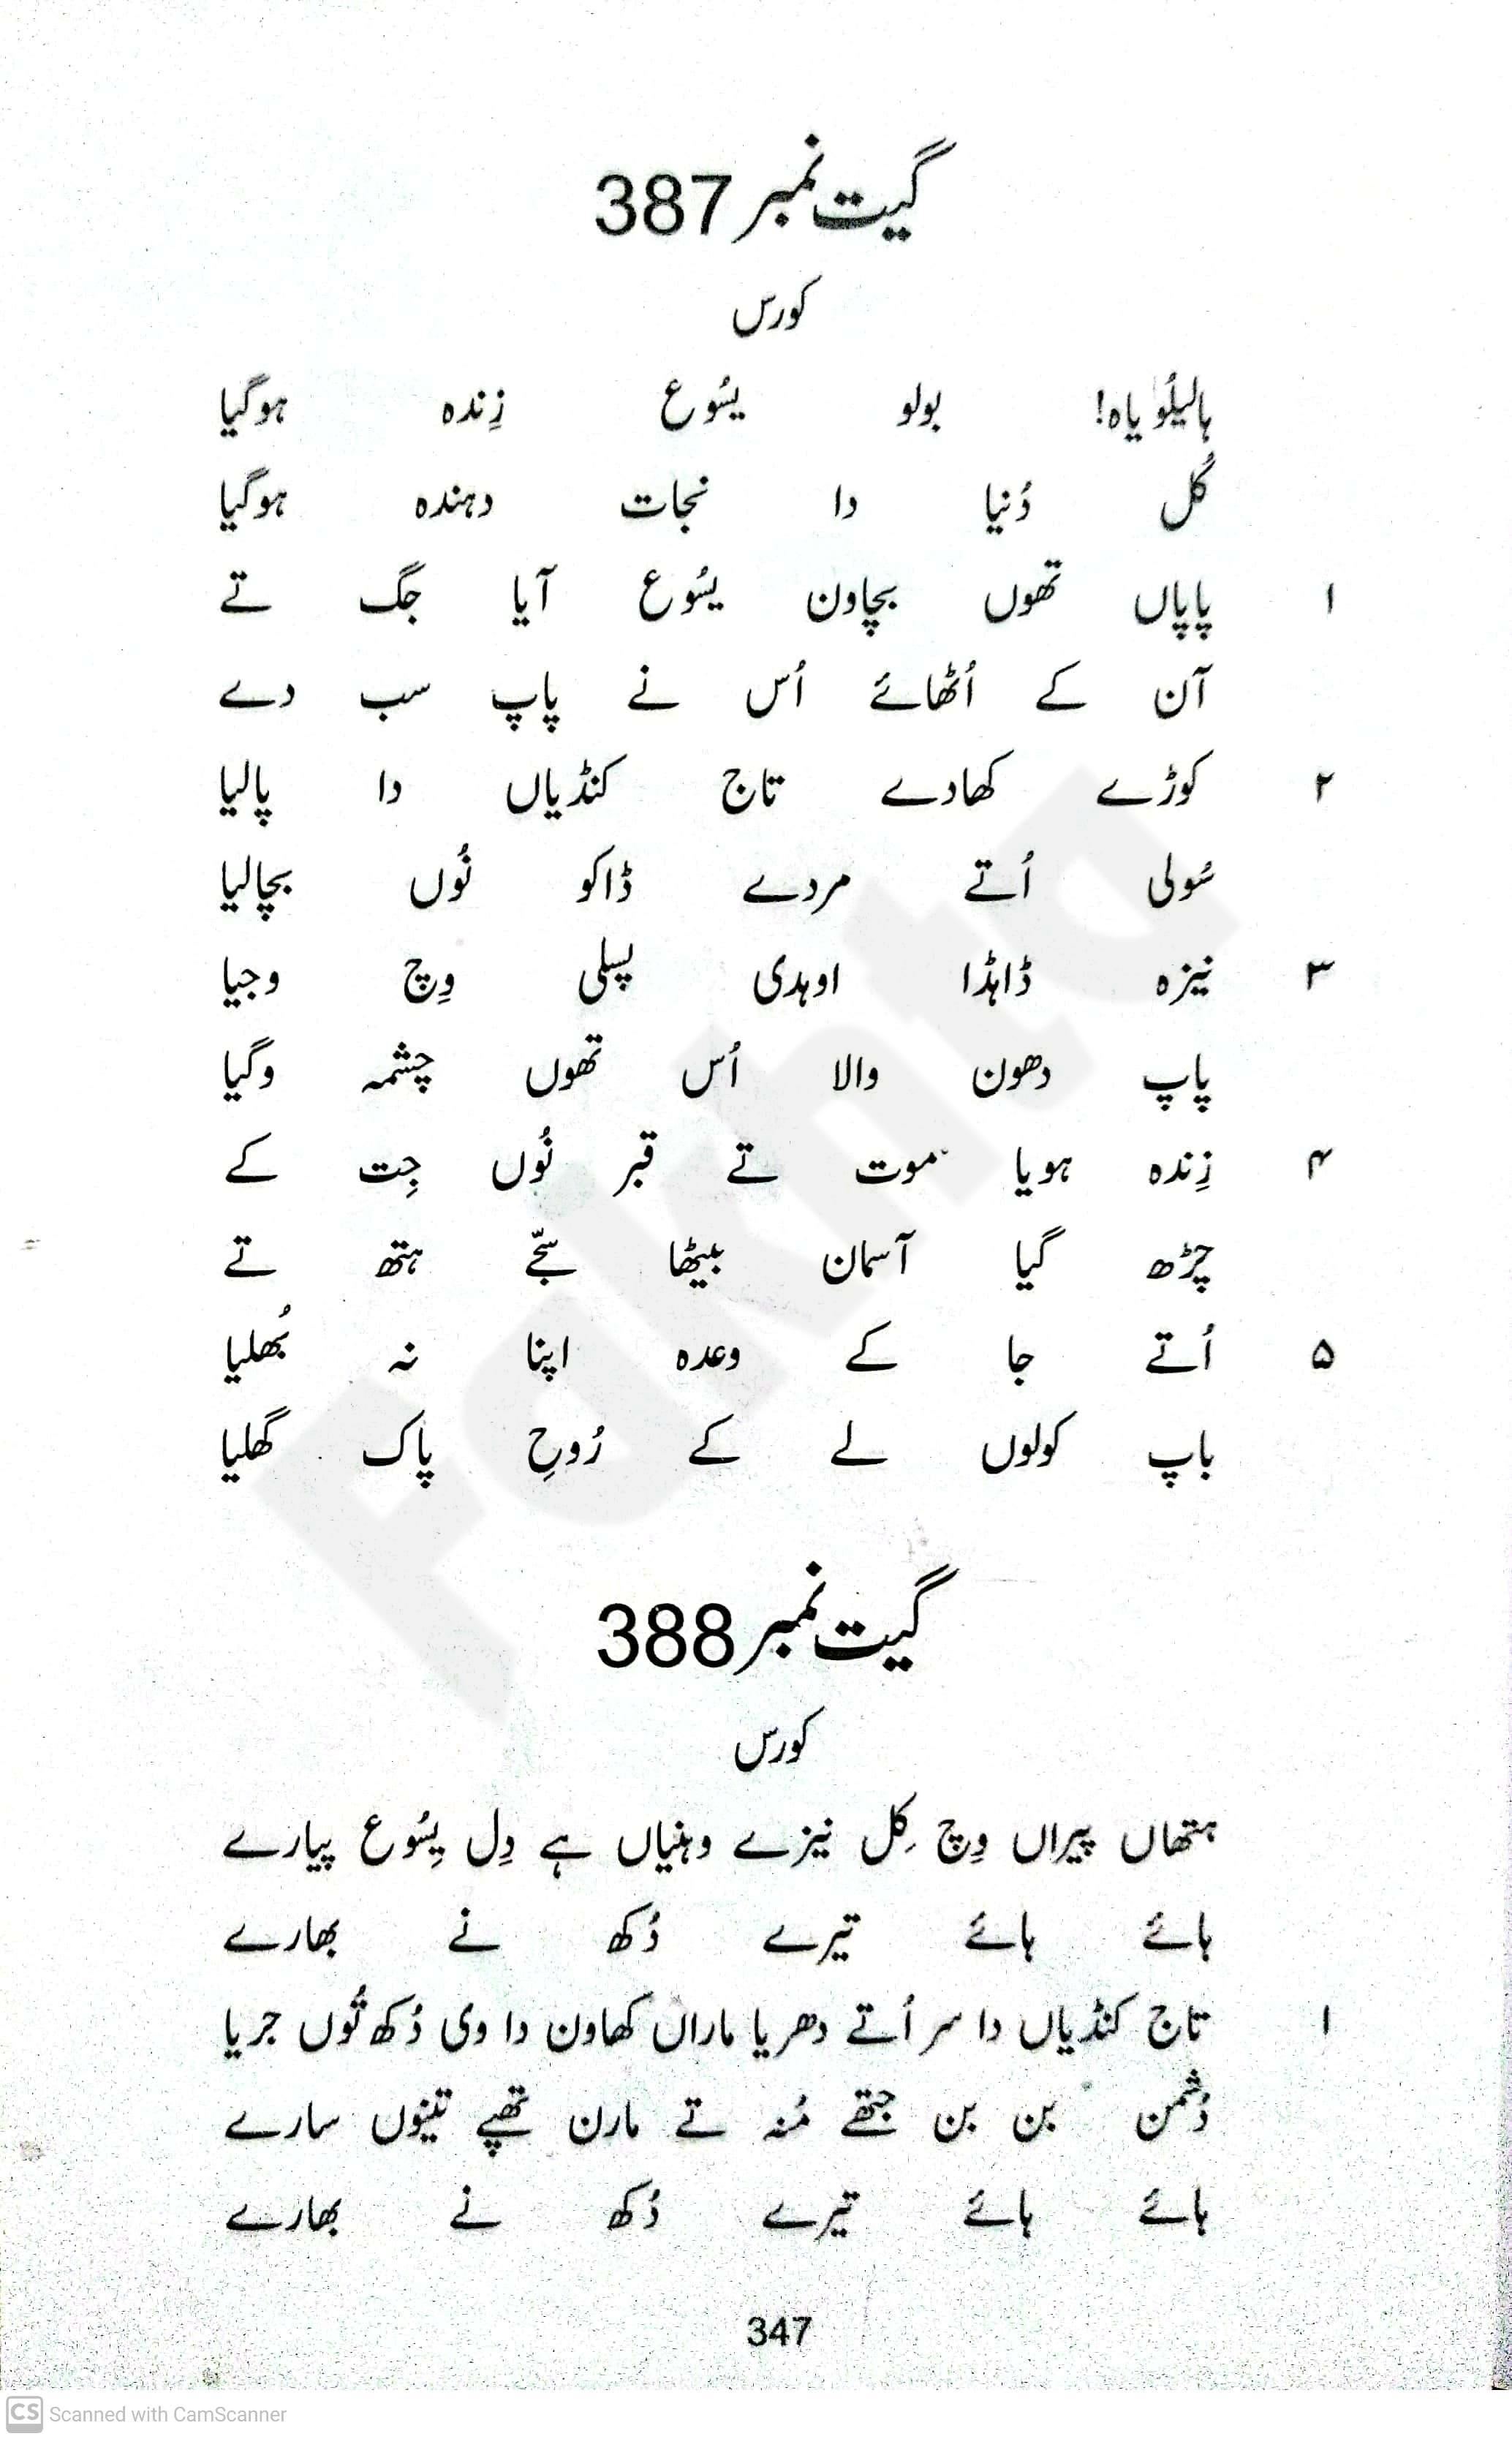 گیت نمبر 387
کورس
ہالیلُویاہ! بولو یسُوع زِندہ ہوگیا
کُل دُنیا دا نجات دہندہ ہوگیا
۱ پاپاں تھوں بچاون یسُوع آیا جگ تے
آن کے اُٹھائے اُس نے پاپ سب دے
۲ کوڑے کھادے تاج کنڈیاں دا پالیا
سُولی اُتے مردے ڈاکو نُوں بچالیا
۳ نیزہ ڈاہڈا اوہدی پسلی وِچ وجیا
پاپ دھون والا اُس تھوں چشمہ وگیا
۴ زِندہ ہویا موت تے قبر نُوں جِت کے
چڑھ گیا آسمان بیٹھا سجّے ہتھ تے
۵ اُتے جا کے وعدہ اپنا نہ بُھلیا
باپ کولوں لے کے رُوحِ پاک گھلیا
گیت نمبر 388
کورس
ہتھاں پیراں وِچ کِل نیزے وِنیاں ہے دِل یِسُوع پیارے
ہائے ہائے تیرے دُکھ نے بھارے
۱ تاج کنڈیاں دا سر اُتے دھریا ماراں کھاون دا وی دُکھ تُوں جریا
دُشمن بن بن جتھے مُنہ تے مارن تھپے تینوں سارے
ہائے ہائے تیرے دُکھ نے بھارے
347
CS Scanned with CamScanner
Fakhta